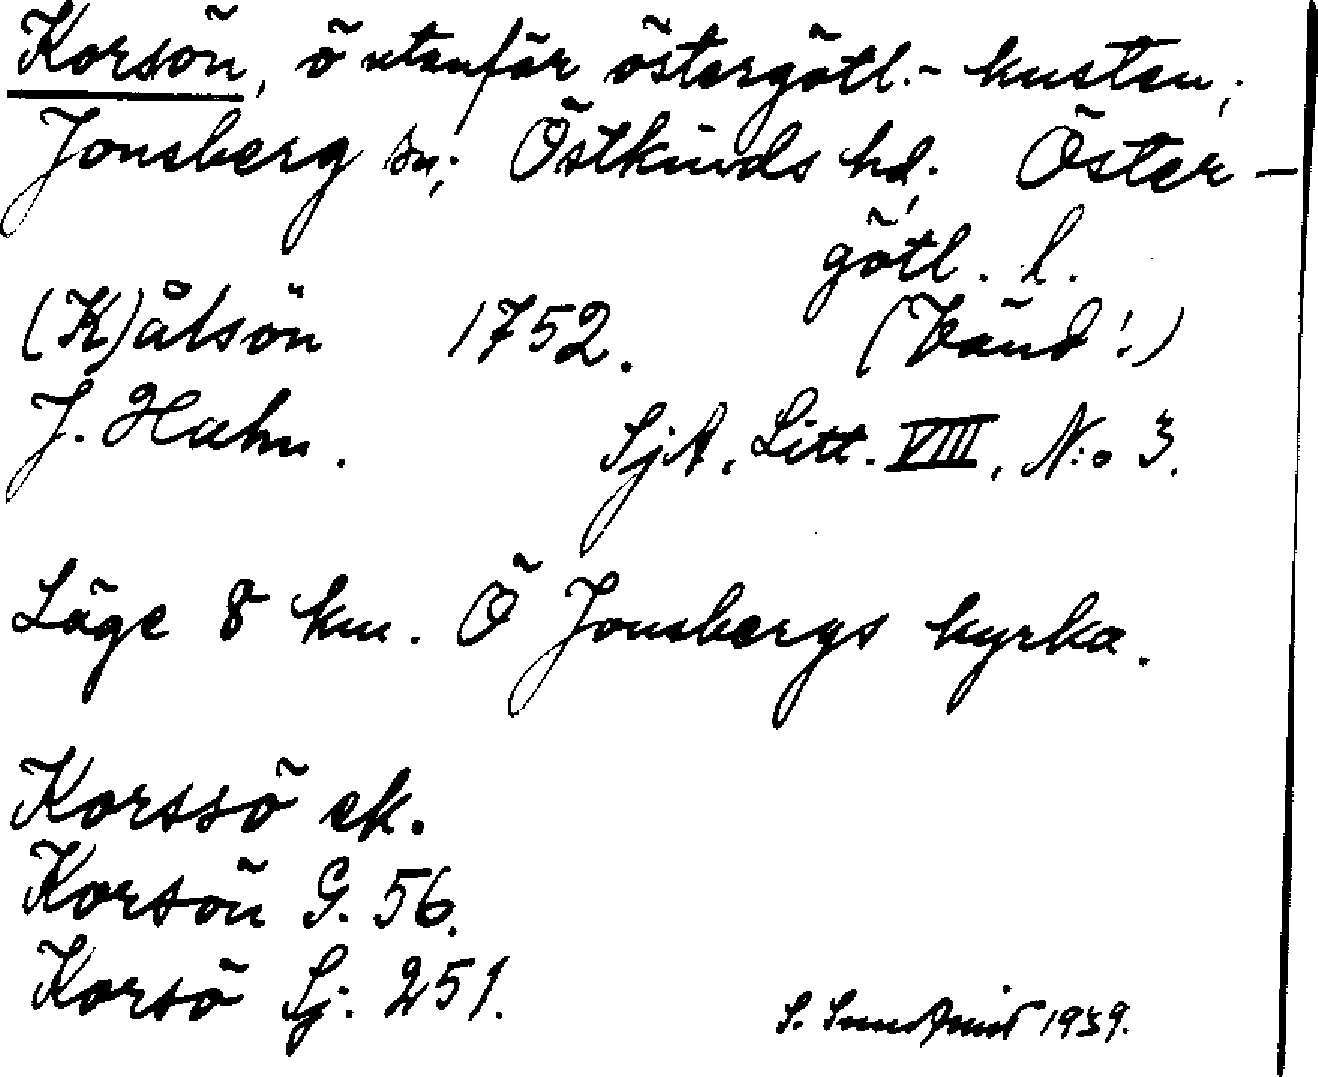 Korsön, ö utanför östergötl.- kusten,
Jonsberg sn; Östkinds hd. Öster-
götl. l.
(K)ålsön 1752. (Vänd!)
J. Hahn. SjA, Litt. VIII, N:o 3.
Läge 8 km. Ö Jonsbergs kyrka.
Korssö ek.
Korsön G. 56.
Korsö Sj. 251.
S. 1939.